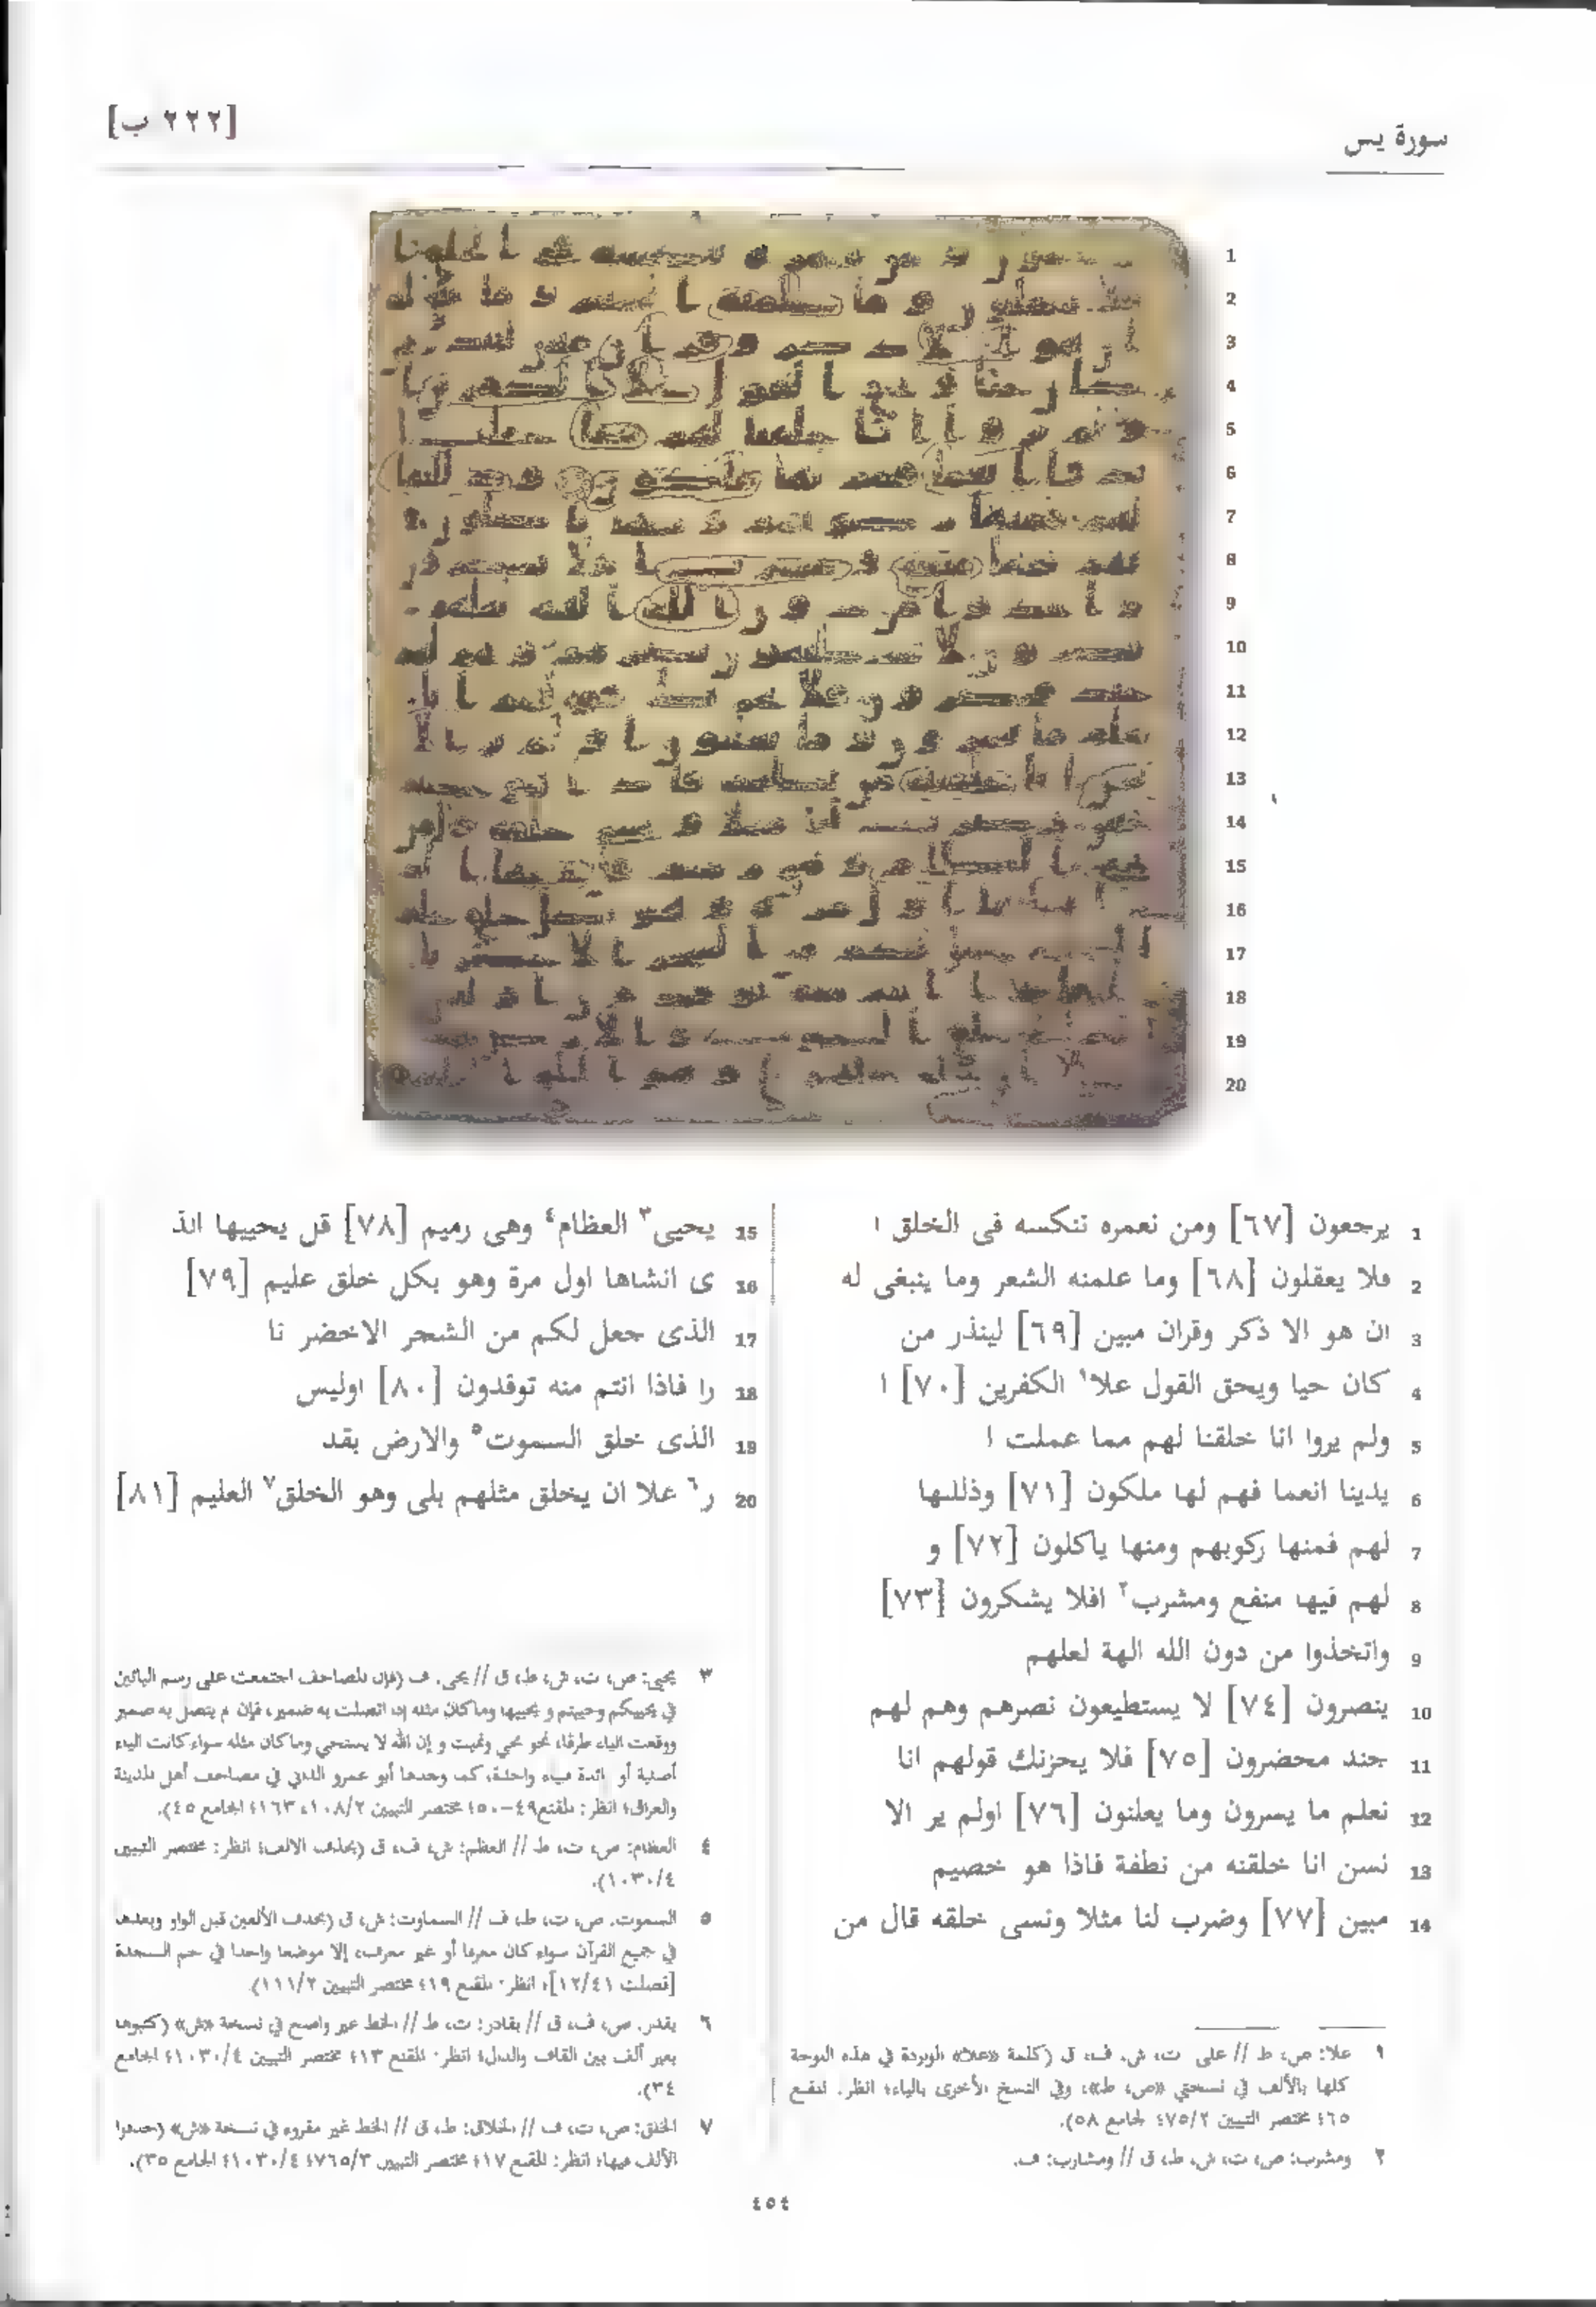 سورة يس
[٢٢٢ ب]
1 يرجعون [٦٧] ومن نعمره ننكسه فى الخلق ا
2 فلا يعقلون [٦٨] وما علمنه الشعر وما ينبغى له
3 ان هو الا ذكر وقران مبين [٦٩] لينذر من
4 كان حيا ويحق القول علا١ الكفرين [٧٠] ا
5 ولم يروا انا خلقنا لهم مما عملت ا
6 يدينا انعما فهم لها ملكون [٧١] وذللنها
7 لهم فمنها ركوبهم ومنها ياكلون [٧٢] و
8 لهم فيها منفع ومشرب٢ افلا يشكرون [٧٣]
9 واتخذوا من دون الله الهة لعلهم
10 ينصرون [٧٤] لا يستطيعون نصرهم وهم لهم
11 جند محضرون [٧٥] فلا يحزنك قولهم انا
12 نعلم ما يسرون وما يعلنون [٧٦] اولم ير الا
13 نسن انا خلقنه من نطفة فاذا هو خصيم
14 مبين [٧٧] وضرب لنا مثلا ونسى خلقه قال من
15 يحيى٣ العظام٤ وهى رميم [٧٨] قل يحييها الذ
16 ى انشاها اول مرة وهو بكل خلق عليم [٧٩]
17 الذى جعل لكم من الشجر الاخضر نا
18 را فاذا انتم منه توقدون [٨٠] اوليس
19 الذى خلق السموت٥ والارض بقد
20 ر٦ علا ان يخلق مثلهم بلى وهو الخلق٧ العليم [٨١]
١ علا: ص، ط // على: ت، ش، ف، ق (كلمة «علا» الواردة في هذه اللوحة
كلها بالألف في نسختي «ص، ط»، وفي النسخ الأخرى بالياء؛ انظر: المقنع
٦٥؛ مختصر التبيين ٧٥/٢؛ الجامع ٥٨).
٢ ومشرب: ص، ت، ش، ط، ق // ومشارب: ف.
٣ يحيي: ص، ت، ش، ط، ق // يحى: ف (فإن المصاحف اجتمعت على رسم اليائين
في يحييكم وحييتم و يحييها وما كان مثله إذا اتصلت به ضمير، فإن لم يتصل به ضمير
ووقعت الياء طرفا، نحو نحي ونميت و إن الله لا يستحي وما كان مثله سواء كانت الياء
أصلية أو زائدة فبياء واحدة، كما وجدها أبو عمرو الداني في مصاحف أهل المدينة
والعراق؛ انظر: المقنع ٤٩-٥٠؛ مختصر التبيين ١٠٨/٢، ١٦٣؛ الجامع ٤٥).
٤ العظام: ص، ت، ط // العظم: ش، ف، ق (بحذف الالف؛ انظر: مختصر التبيين
١٠٣٠/٤).
٥ السموت: ص، ت، ط، ف // السماوت: ش، ق (بحذف الألفين قبل الواو وبعدها
في جميع القرآن سواء كان معرفا أو غير معرف، إلا موضعا واحدا في حم السجدة
[فصلت ١٢/٤١]؛ انظر: المقنع ١٩؛ مختصر التبيين ١١١/٢).
٦ بقدر: ص، ف، ق // بقادر: ت، ط // الخط غير واضح في نسخة «ش» (كتبوها
بغير ألف بين القاف والدال؛ انظر: المقنع ١٣؛ مختصر التبيين ١٠٣٠/٤؛ الجامع
٣٤).
٧ الخلق: ص، ت، ف // الخلاق: ط، ق // الخط غير مقروء في نسخة «ش» (حذفوا
الألف فيها؛ انظر: المقنع ١٧؛ مختصر التبيين ٧٦٥/٣؛ ١٠٣٠/٤؛ الجامع ٣٥).
٤٥٤